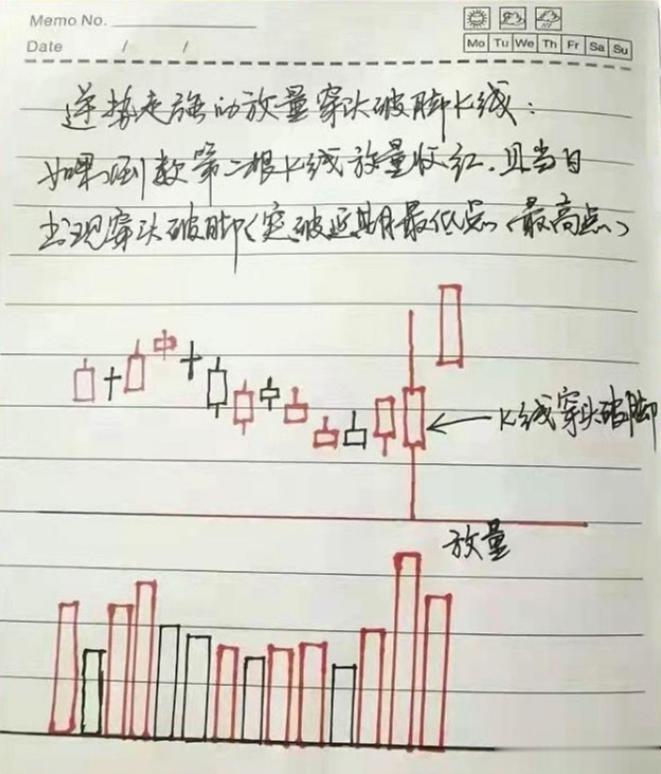 Memo No.
Date / /
Mo Tu We Th Fr Sa Su
逆势走强的放量穿头破脚K线：
如果倒数第二根K线放量收红.且当日
出现穿头破脚(突破近期最低点、最高点)
K线穿头破脚
放量